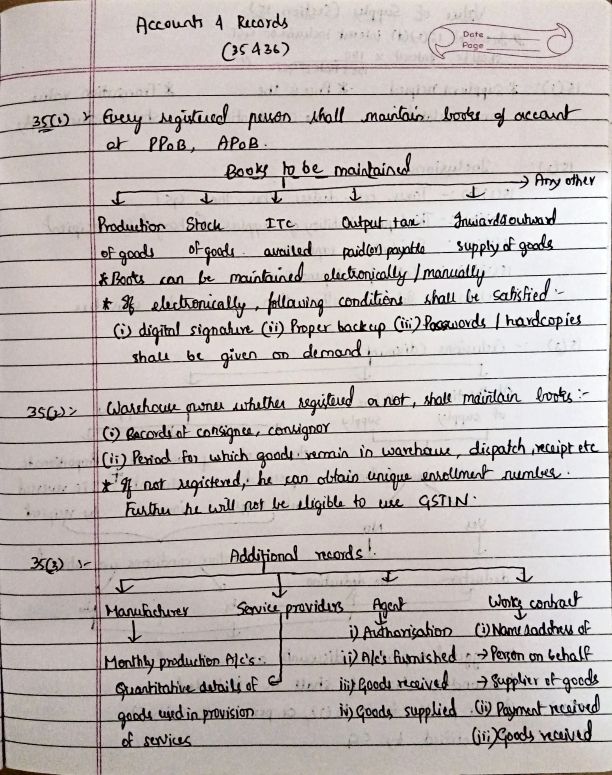 Accounts & Records
(35 & 36)
Date
Page
35(1) :- Every registered person shall maintain books of account
at PPoB, APoB.
Books to be maintained
→ Any other
Production of goods
Stock of goods
ITC availed
Output tax paid(or) payable
Inward & outward supply of goods
* Books can be maintained electronically / manually
* If electronically, following conditions shall be satisfied :-
(i) digital signature (ii) Proper backup (iii) Passwords / hardcopies
shall be given on demand
35(2) :- Warehouse owner whether registered or not, shall maintain books :-
(i) Records of consignee, consignor
(ii) Period for which goods remain in warehouse, dispatch, receipt etc
* If not registered, he can obtain unique enrollment number.
Further he will not be eligible to use GSTIN.
35(3) :- Additional records :
Manufacturer
Monthly production A/c's
Service providers
Quantitative details of
goods used in provision
of services
Agent
i) Authorisation
ii) A/c's furnished
iii) Goods received
iv) Goods supplied
Works contract
(i) Name & address of
→ Person on behalf
→ Supplier of goods
(ii) Payment received
(iii) Goods received